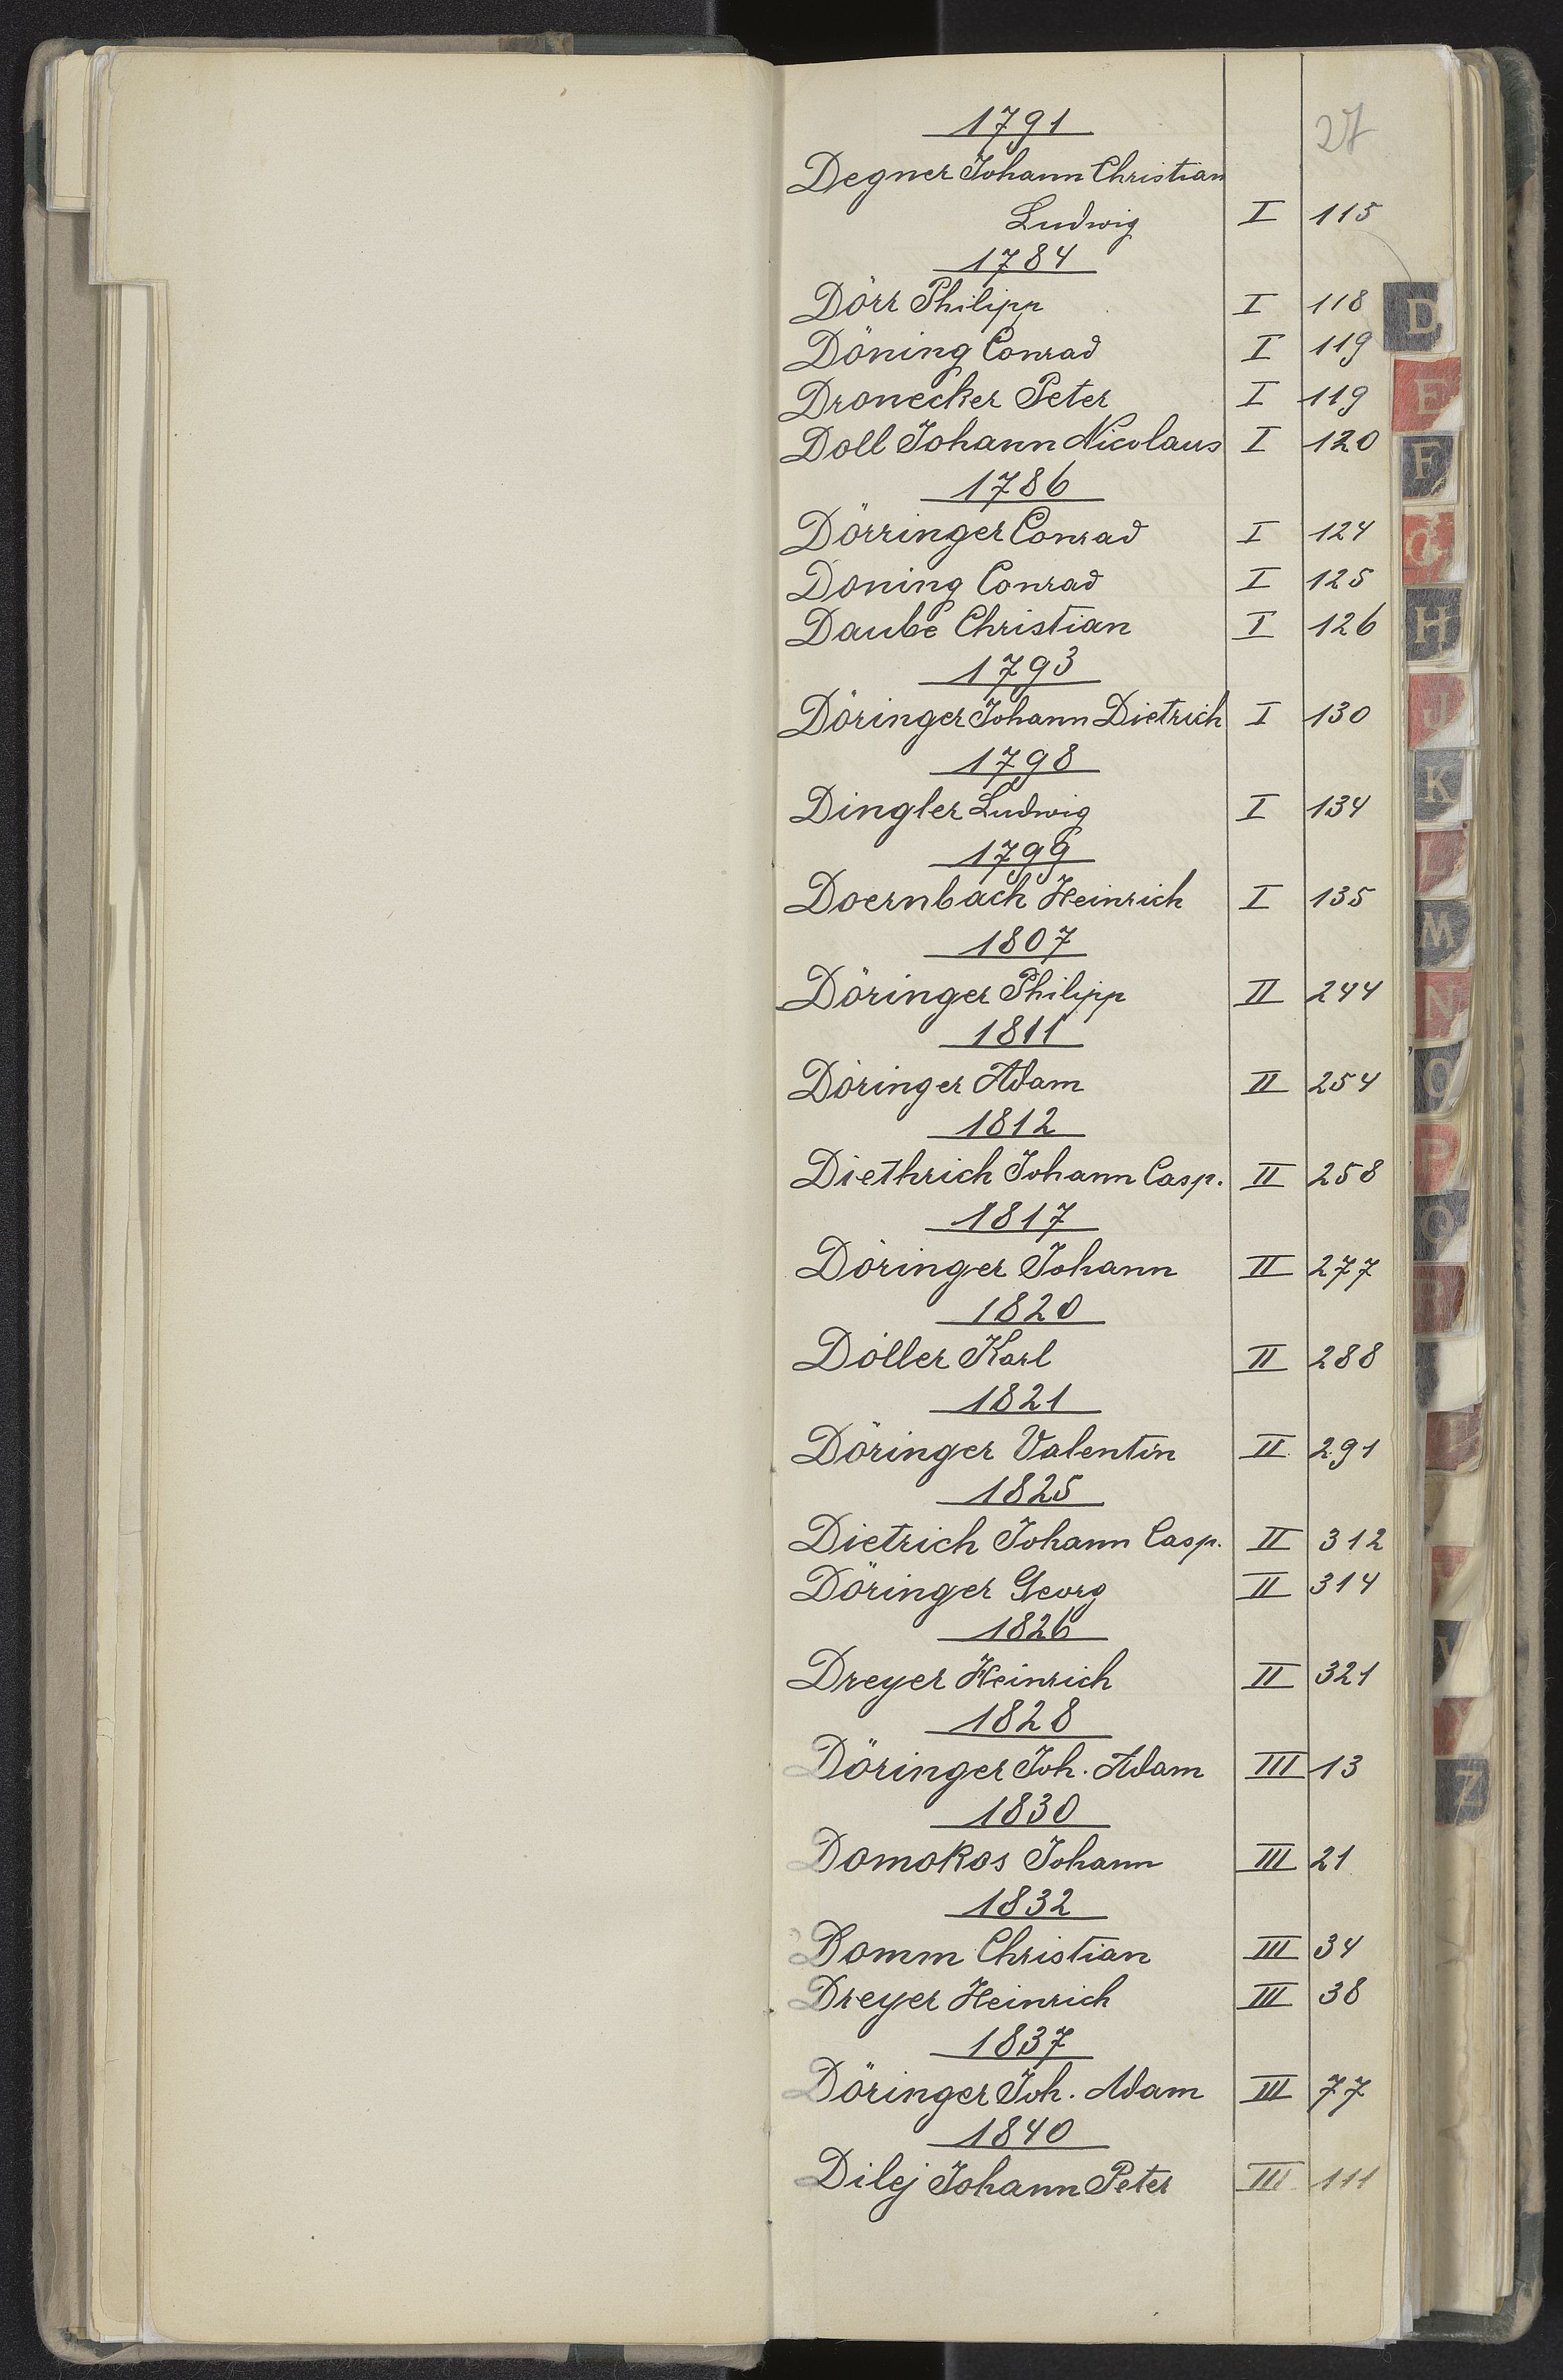 27
1791
Degner Johann Christian
Ludwig I 115
1784
Dörr Philipp I 118
Döning Conrad I 119
Dronecker Peter I 119
Doll Johann Nicolaus I 120
1786
Dörringer Conrad I 124
Doning Conrad I 125
Daube Christian I 126
1793
Döringer Johann Dietrich I 130
1798
Dingler Ludwig I 134
1799
Doernbach Heinrich I 135
1807
Döringer Philipp II 244
1811
Döringer Adam II 254
1812
Diethrich Johann Casp. II 258
1817
Döringer Johann II 277
1820
Döller Karl II 288
1821
Döringer Valentin II 291
1825
Dietrich Johann Casp. II 312
Döringer Georg II 314
1826
Dreyer Heinrich II 321
1828
Döringer Joh. Adam III 13
1830
Domokos Johann III 21
1832
Domm Christian III 34
Dreyer Heinrich III 38
1837
Döringer Joh. Adam III 77
1840
Dilej Johann Peter III 111
D
E
F
G
H
J
K
L
M
N
O
P
Q
R
Z